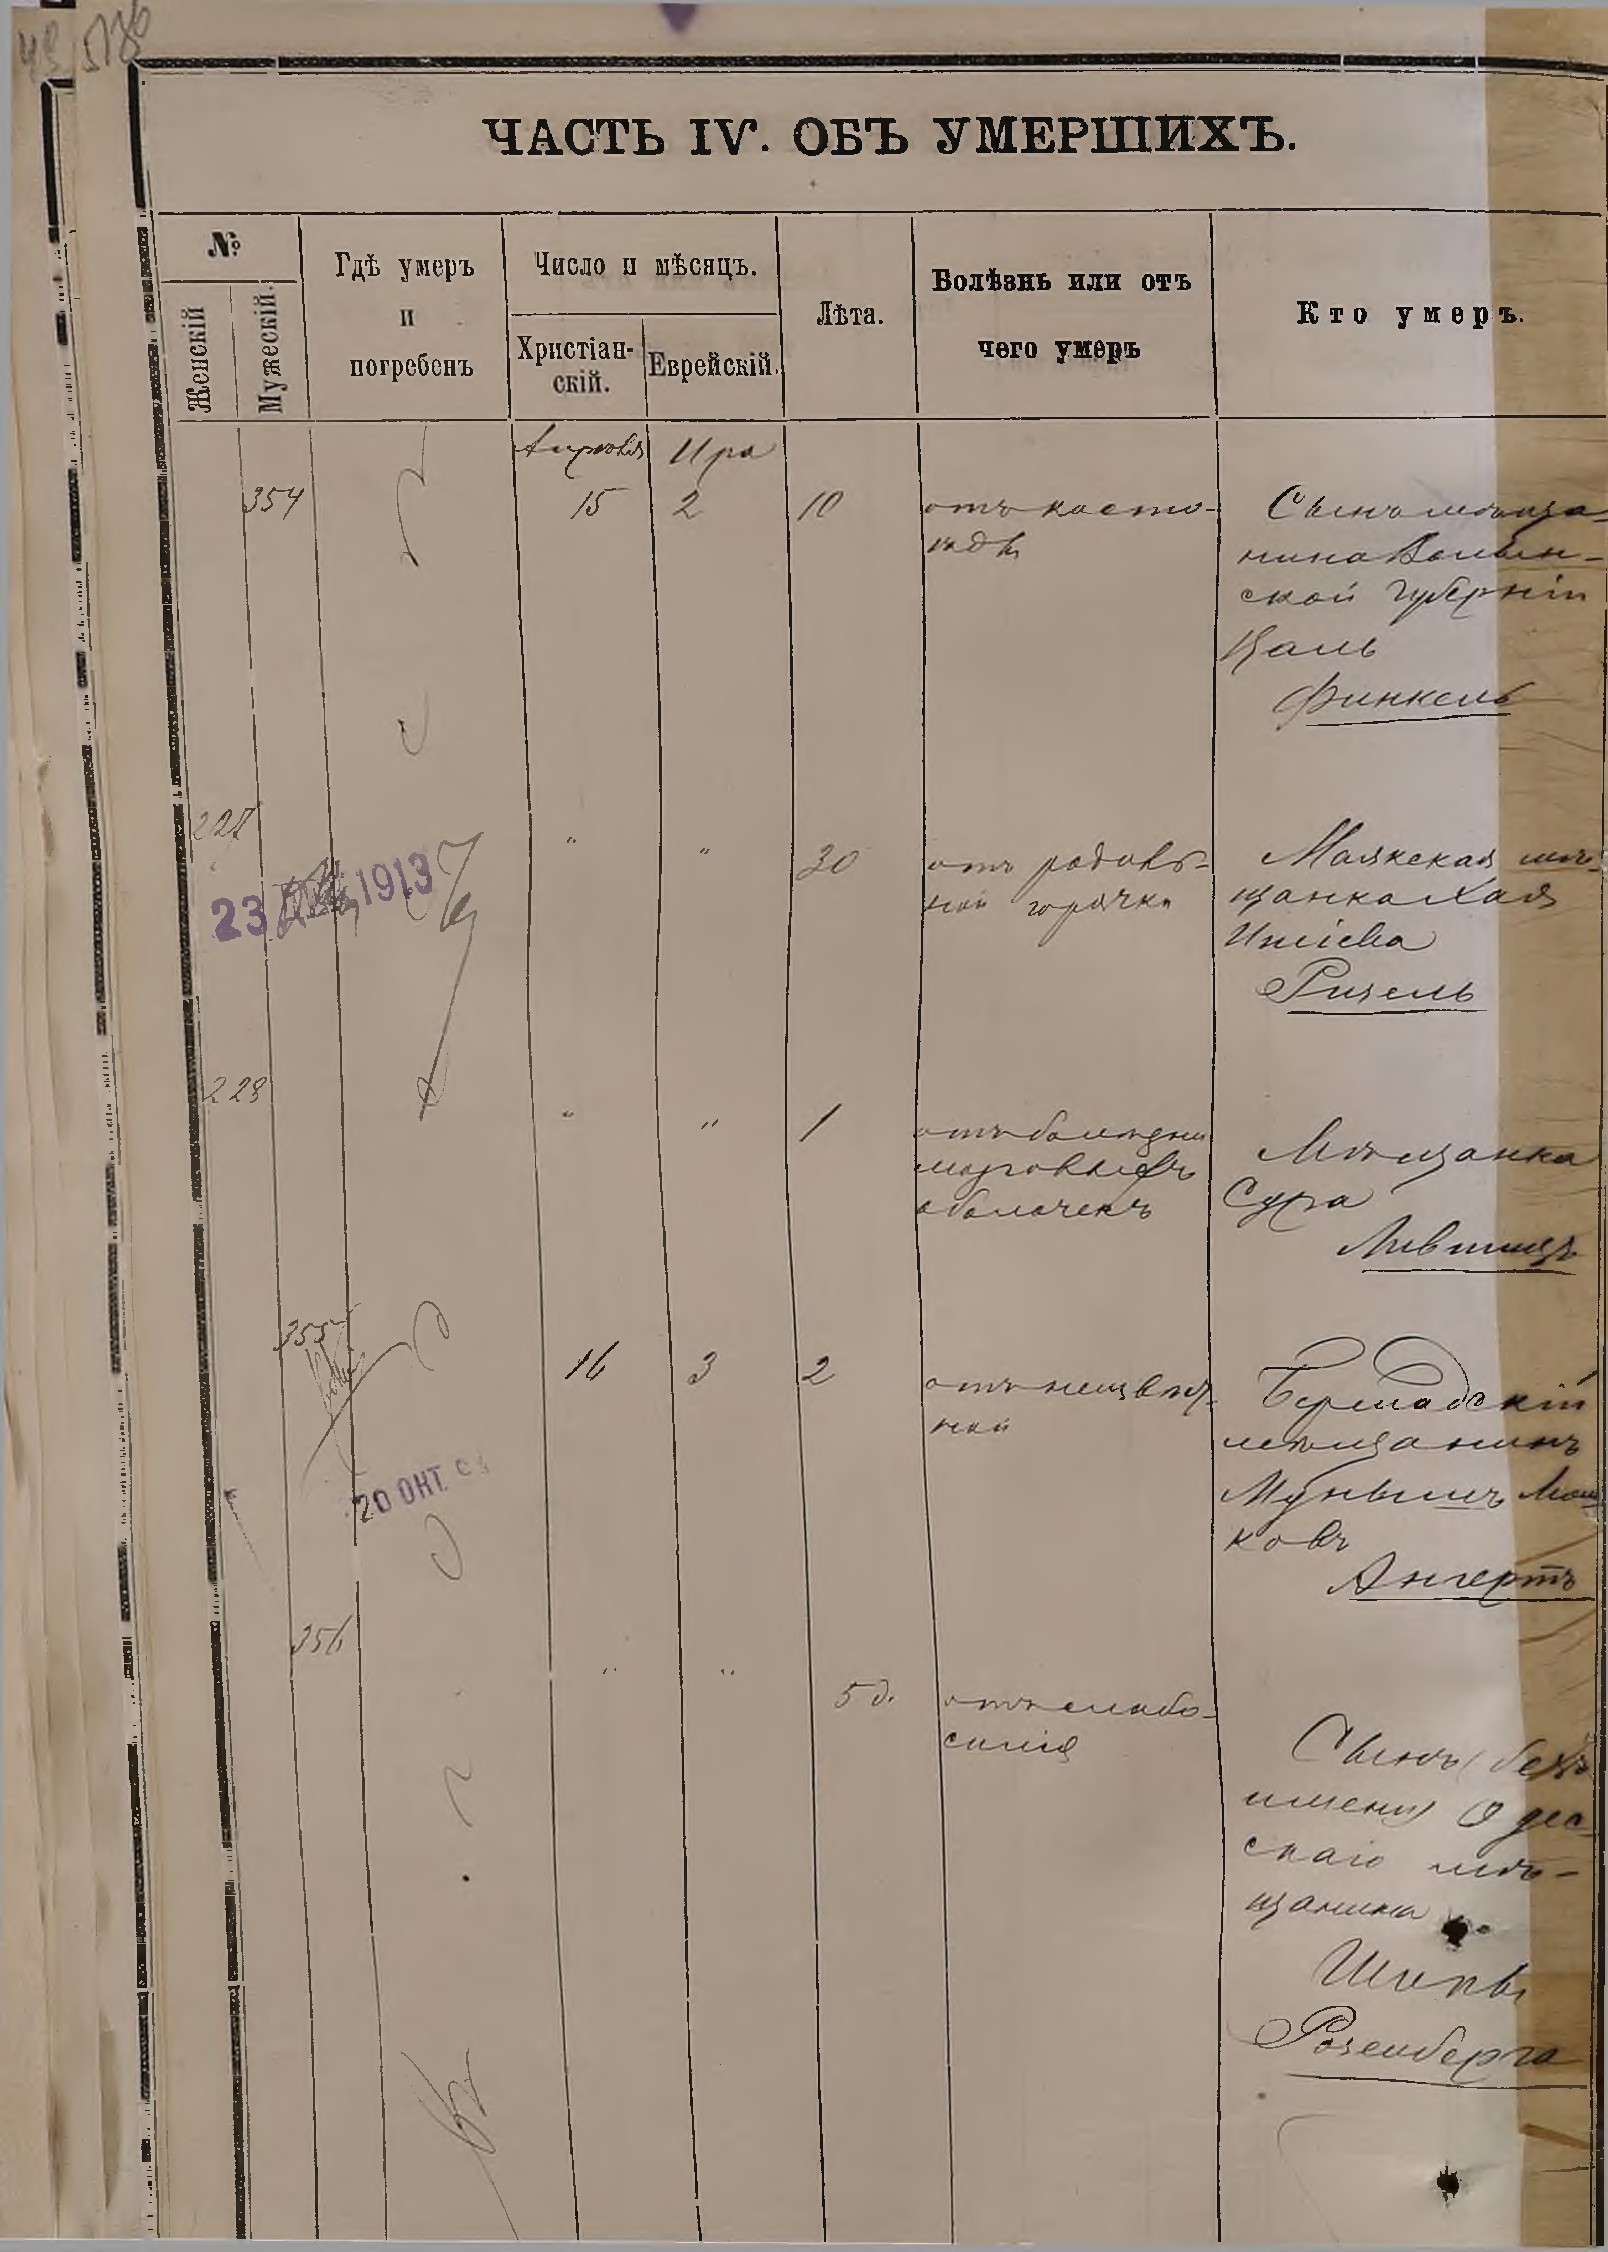 ЧАСТЬ IV. ОБЪ УМЕРШИХЪ.
№
Женскій
Мужескій.
Гдѣ умеръ
и
погребенъ
Число и мѣсяцъ.
Христіан-
скій.
Еврейскій.
Лѣта.
Болѣзнь или отъ
чего умеръ
Кто умеръ.
Апрѣля Ира
354 15 2 10
отъ косто-
ѣды
Сынъ мѣща-
нина Волын-
ской губерніи
Цаль
Финкель
227 " " 30
отъ родиль-
ной горячки
Маякская мѣ-
щанка Хая
Ицкіева
Ризель
23 1913
228 " " 1
отъ болѣзни
мозговыхъ
оболочекъ
Мѣщанка
Сура
Лившицъ
355 16 3 2
отъ
ной
Бершадскій
мѣщанинъ
Мошь
ковъ
Ангертъ
20 ОКТ.
356 " " 5 д.
отъ слабо-
силія
Сынъ (безъ
имени) Одес-
скаго мѣ-
щанина
Розенберга